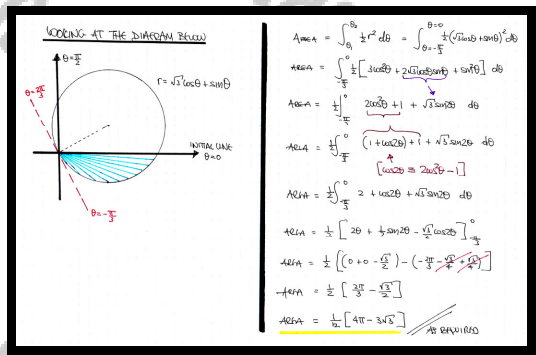 LOOKING AT THE DIAGRAM BELOW
θ = π/2
θ = 2π/3
r = √3cosθ + sinθ
INITIAL LINE
θ = 0
θ = -π/3
AREA = ∫_θ₁^θ₂ ½r² dθ = ∫_θ=-π/3^θ=0 ½(√3cosθ + sinθ)² dθ
AREA = ∫_-π/3^0 ½[3cos²θ + 2√3cosθsinθ + sin²θ] dθ
AREA = ½∫_-π/3^0 2cos²θ + 1 + √3sin2θ dθ
AREA = ½∫_-π/3^0 (1 + cos2θ) + 1 + √3sin2θ dθ
[cos2θ ≡ 2cos²θ - 1]
AREA = ½∫_-π/3^0 2 + cos2θ + √3sin2θ dθ
AREA = ½[2θ + ½sin2θ - √3/2 cos2θ]_-π/3^0
AREA = ½[(0 + 0 - √3/2) - (-2π/3 - √3/4 + √3/4)]
AREA = ½[2π/3 - √3/2]
AREA = 1/12[4π - 3√3]
AS REQUIRED